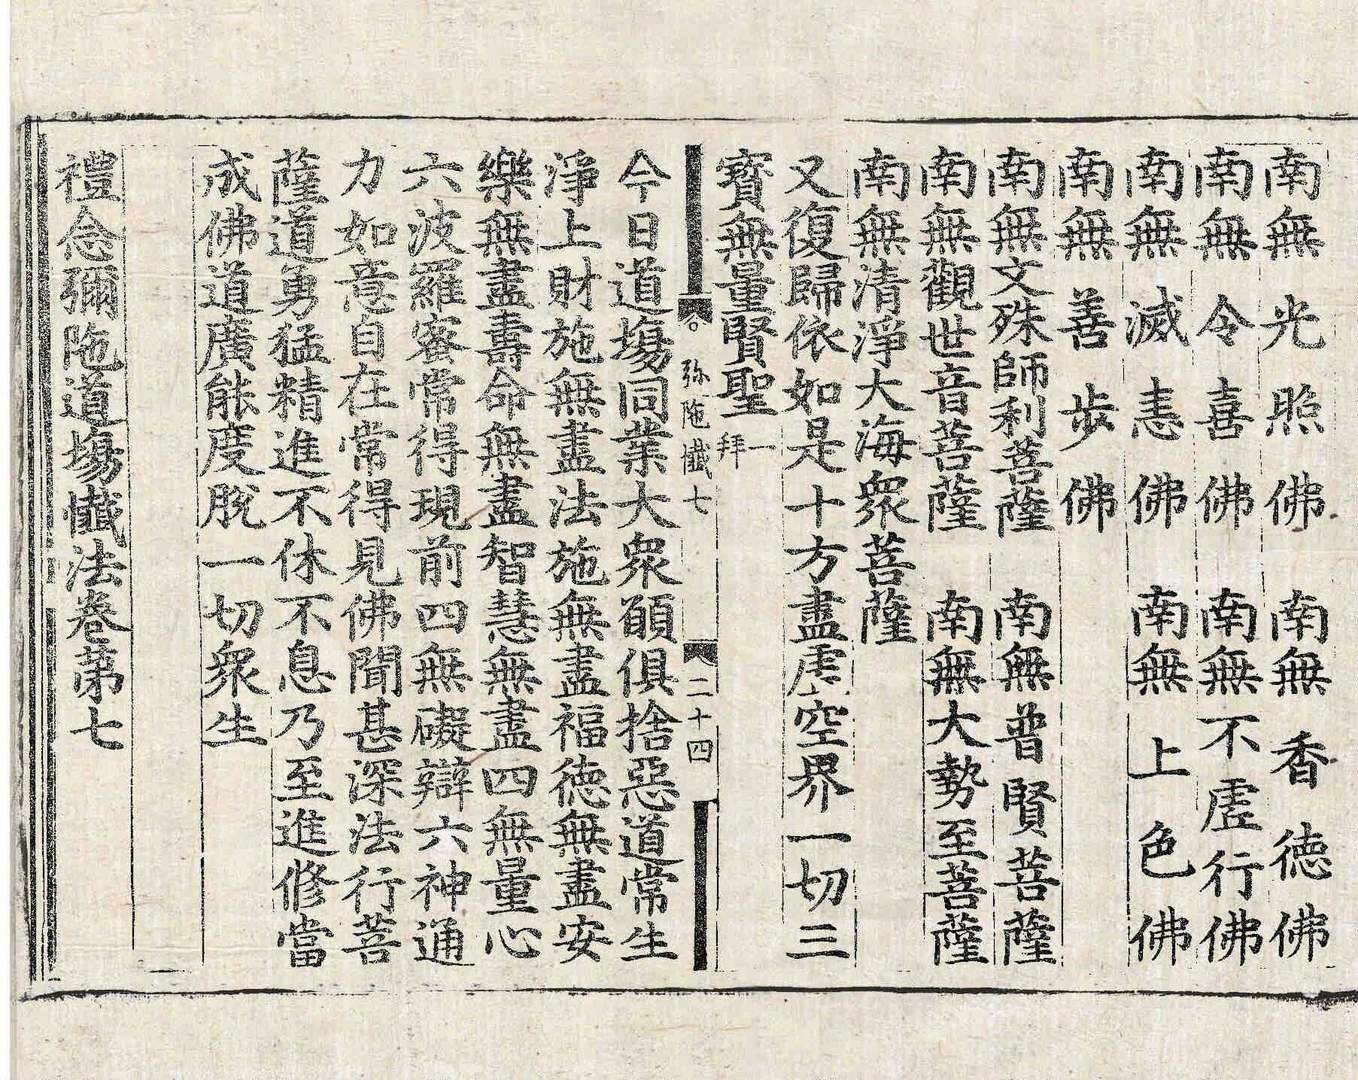 南無光照佛　南無香德佛
南無令喜佛　南無不虛行佛
南無滅恚佛　南無上色佛
南無善步佛
南無文殊師利菩薩　南無普賢菩薩
南無觀世音菩薩　南無大勢至菩薩
南無清淨大海衆菩薩
又復歸依如是十方盡虛空界一切三
寶無量賢聖 一拜
弥陁懺七　二十四
今日道塲同業大衆願俱捨惡道常生
淨土財施無盡法施無盡福德無盡安
樂無盡壽命無盡智慧無盡四無量心
六波羅蜜常得現前四無礙辯六神通
力如意自在常得見佛聞甚深法行菩
薩道勇猛精進不休不息乃至進修當
成佛道廣能度脫一切衆生
禮念彌陁道塲懺法卷第七